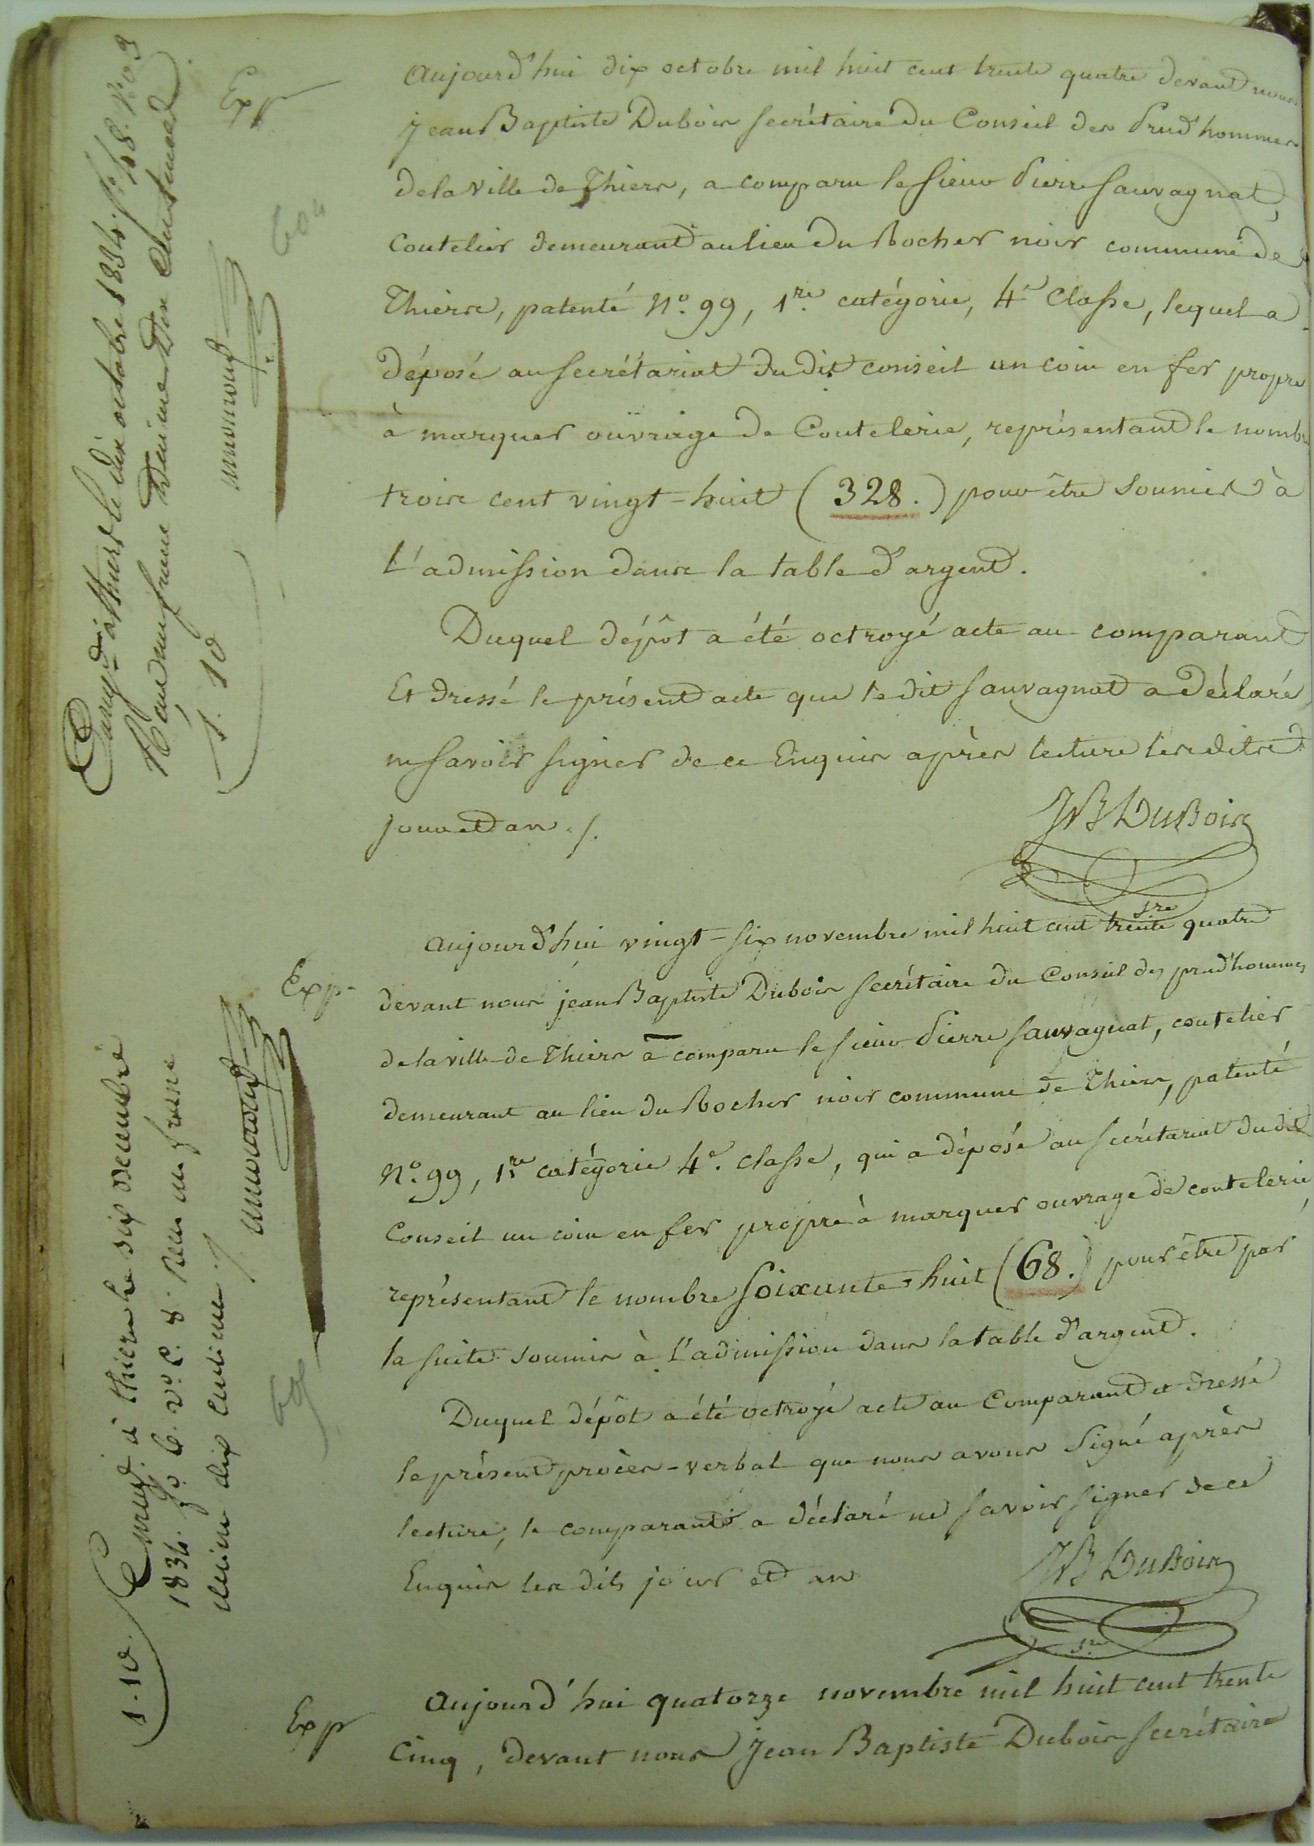 Exp
Aujourd'hui dix octobre mil huit cent trente quatre devant nous
Jean Baptiste Dubois secrétaire du Conseil des Prud'hommes
de la Ville de Thiers, a comparu le sieur Pierre Sauvagnat,
Coutelier demeurant au lieu du Rocher noir commune de
Thiers, patenté N.º 99, 1.re catégorie, 4.e Classe, lequel a
déposé au secrétariat du dit conseil un coin en fer propre
à marquer ouvrage de Coutelerie, représentant le nombre
trois cent vingt-huit (328.) pour être soumis à
l'admission dans la table d'argent.
Duquel dépôt a été octroyé acte au comparant
Et dressé le présent acte que le dit Sauvagnat a déclaré
ne savoir signer de ce Enquis après lecture les dits
jour et an ./.
JB DuBois
s.re
Enreg. à Thiers le dix octobre 1834. f.º 48. R.º 3
Reçu un franc dixime dix centimes
1. 10
60
Exp.
Aujourd'hui vingt-six novembre mil huit cent trente quatre
devant nous Jean Baptiste Dubois secrétaire du Conseil des prud'hommes
de la ville de Thiers a comparu le sieur Pierre Sauvagnat, coutelier
demeurant au lieu du Rocher noir commune de Thiers, patenté
N.º 99, 1.re catégorie 4.e classe, qui a déposé au secrétariat du dit
Conseil un coin en fer propre à marquer ouvrage de coutelerie,
représentant le nombre soixante-huit (68.) pour être par
la suite soumis à l'admission dans la table d'argent.
Duquel dépôt a été octroyé acte au Comparant et dressé
le présent procès-verbal que nous avons signé après
lecture, le comparant a déclaré ne savoir signer de ce
Enquis les dits jour et an
JB DuBois
s.re
Enreg. à Thiers le six décembre
1834. f.º 6. v.º c. 8. Reçu un franc
dixime dix centimes
1. 10.
Exp
Aujourd'hui quatorze novembre mil huit cent trente
Cinq, devant nous Jean Baptiste Dubois secrétaire